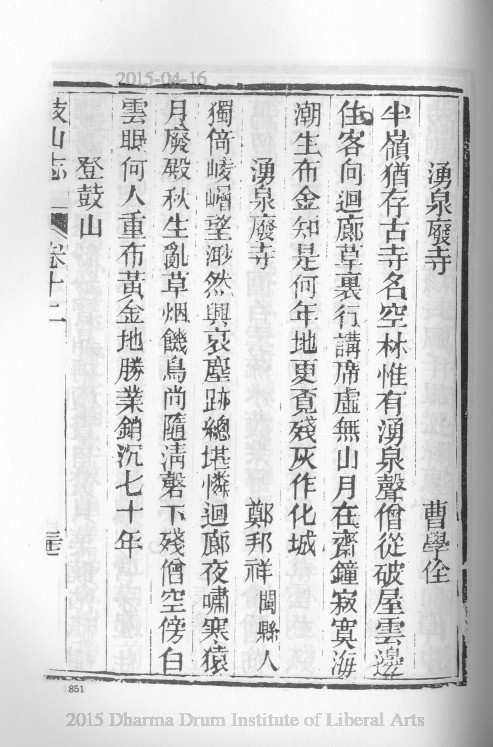 2015-04-16
湧泉廢寺　曹學佺
半嶺猶存古寺名空林惟有湧泉聲僧從破屋雲邊
住客向迴廊草裏行講席虛無山月在齋鐘寂寞海
潮生布金知是何年地更覓殘灰作化城
湧泉廢寺　鄭邦祥閩縣人
獨倚崚嶒望渺然興哀塵跡總堪憐迴廊夜嘯寒猿
月廢殿秋生亂草烟饑鳥尚隨清磬下殘僧空傍白
雲眠何人重布黃金地勝業銷沉七十年
登鼓山
鼓山志　卷十二
851
2015 Dharma Drum Institute of Liberal Arts